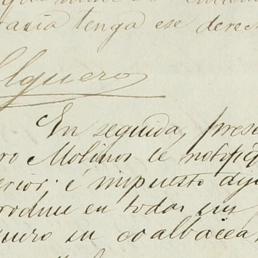 tenga ese derec
Elguero
En seguida, prese
ro Molinos le notifiq
erior; é impuesto dij
produce en todas sus
guero su coalbacea,